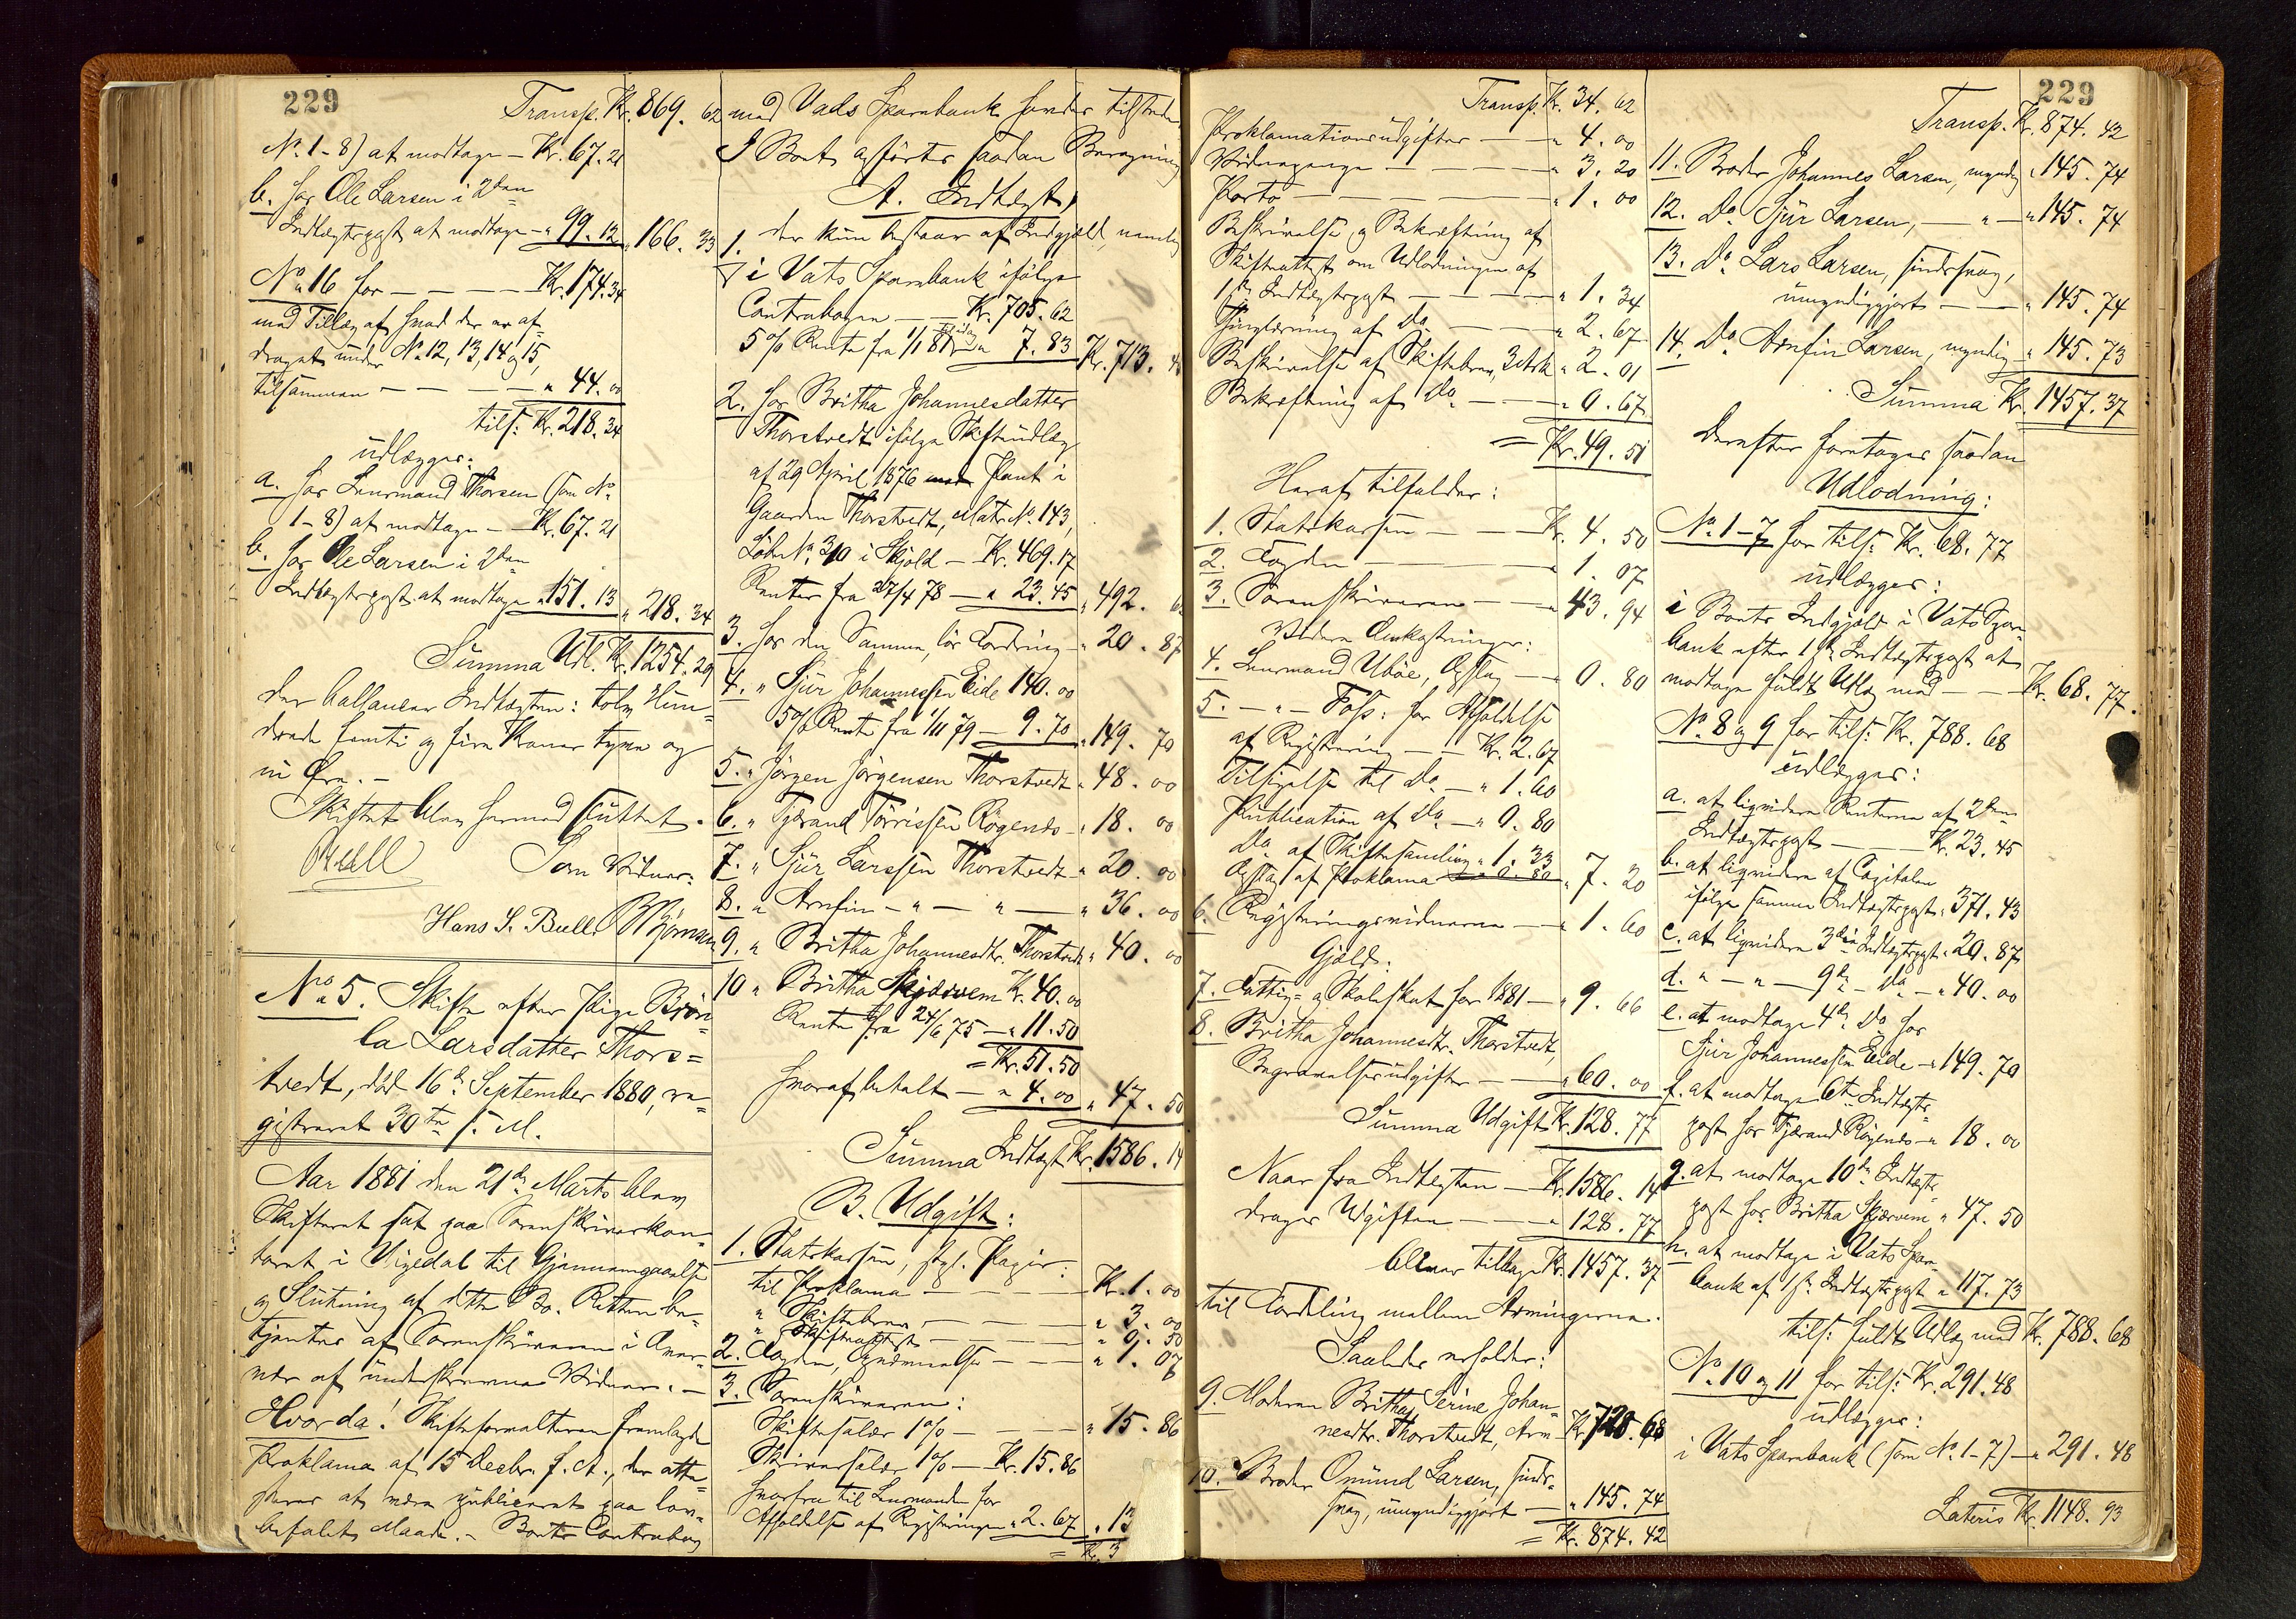 229
Transp. Kr. 869. 62
No. 1-8) at modtage - Kr. 67. 21
b. hos Ole Larsen i 2den
Indtægtspost at modtage - " 99. 12 " 166. 33
No. 16 for - - - - Kr. 174. 34
med Tillæg af hvad der er af-
draget under No. 12, 13, 14 og 15,
tilsammen - - - - " 44. 00
tils: Kr. 218. 34
udlægges:
a. hos Lensmand Thorsen (som No.
1-8) at modtage - Kr. 67. 21
b. hos Ole Larsen i 2den
Indtægtspost at modtage " 151. 13 " 218. 34
Summa Udl. Kr. 1254. 29
der ballancer Indtægten: tolv Hun-
drede femti og fire Kroner tyve og
ni Øre. -
Skiftet blev hermed sluttet.
Bull
Som Vidner:
Hans S. Bull.
No. 5. Skifte efter Pige Brön-
la Larsdatter Thors=
tvedt, död 16de September 1880, re-
gistreret 30te s. M.
Aar 1881 den 21de Marts blev
Skifteret sat paa Sorenskriverkon-
toret i Vigedal til Gjennemgaaelse
og Slutning af dette Bo. Retten be-
tjentes af Sorenskriveren i Over-
vær af underskrevne Vidner. -
Hvorda! Skifteforvalteren fremlagde
Proklama af 15 Decbr. f. A., der atte-
steres at være publiceret paa lov-
befalet Maade. - Boets Contrabog
med Vads Sparebank havdes tilstede.
I Boet opførtes saadan Beregning
A. Indtægt,
der kun bestaar af Indgjæld, nemlig
1. i Vats Sparebank ifølge
Contrabogen - - Kr. 705. 62
5% Rente fra 1/1 81 " 7. 83 Kr. 713.
2. hos Britha Johannesdatter
Thorstvedt ifølge Skifteudlæg
af 29 April 1876 med Pant i
Gaarden Thorstvedt, Matr. No. 143,
Löbe No. 310 i Skjold - Kr. 469. 17
Renter fra 27/4 78 - " 23. 45 " 492.
3. hos den Samme, lös Fordring - " 20. 87
4. " Sjur Johannessen Eide 140. 00
5% Rente fra 1/11 79 - 9. 70 " 149. 70
5. " Jørgen Jørgensen Thorstvedt " 48. 00
6. " Tjerand Törrissen Rögenes - " 18. 00
7. " Sjur Larssen Thorstvedt - " 20. 00
8. " Arnfin - " - " - " 36. 00
9. " Britha Johannesdtr. Thorstvedt " 40. 00
10 " Britha Skjærvem Kr. 40. 00
Rente fra 24/6 75 - " 11. 50
= Kr. 51. 50
hvoraf betalt - " 4. 00 " 47. 50
Summa Indtægt Kr. 1586. 14
B. Udgift:
1. Statskassen, stpl. Papir:
til Proklama - - - - Kr. 1. 00
" Skiftebrev - - - " 3. 00
" Skifteattest - - - " 0. 50
2. Fogden, Anmeldelse - - - " 1. 07
3. Sorenskriveren:
Skiftesalær 1% - - - - " 15. 86
Skriversalær 1% - Kr. 15. 86
hvorfra til Lensmanden for
Afholdelse af Registreringen " 2. 67 " 13
= Kr. 3
Transp. Kr. 34. 62
Proklamationsudgifter - - " 4. 00
Vidnepenge - - - - - " 3. 20
Porto - - - - - - " 1. 00
Beskrivelse og Bekræftning af
Skifteattest om Udlodningen af
1ste Indtægtspost - - - - " 1. 34
Thinglæsning af Do. - - - " 2. 67
Beskrivelse af Skiftebrev, 3 Ark " 2. 01
Bekræftning af Do. - - - " 0. 67
= Kr. 49. 51
Heraf tilfalder:
1. Statskassen - - - Kr. 4. 50
2. Fogden - - - - - " 1. 07
3. Sorenskriveren - - - " 43. 94
Videre Omkostninger:
4. Lensmand Uböe, Opslag - - " 0. 80
5. - " - Foss: for Afholdelse
af Registrering - - Kr. 2. 67
Tilsigelse til Do. - " 1. 60
Publication af Do. - " 0. 80
Do. af Skiftesamling " 1. 33
Opslag af Proklama " 0. 80 " 7. 20
6. Registreringsvidnerne - - " 1. 60
Gjæld.
7. Fattig- og Skoleskat for 1881 - " 9. 66
8. Britha Johannesdtr. Thorstvedt,
Begravelsesudgifter - - - " 60. 00
Summa Udgift Kr. 128. 77
Naar fra Indtægten - Kr. 1586. 14
drages Udgiften - - - " 128. 77
bliver tilbage Kr. 1457. 37
til Fordeling mellem Arvingerne.
Saaledes erholder:
9. Moderen Britha Serine Johan-
nesdtr. Thorstvedt, Arv - Kr. 728. 68
10. Broder Omund Larsen, sinds-
svag, umyndiggjort - " 145. 74
= Kr. 874. 42
229
Transp. Kr. 874. 42
11. Broder Johannes Larsen, myndig " 145. 74
12. Do. Sjur Larsen, - " - " 145. 74
13. Do. Lars Larsen, sindssvag,
umyndiggjort - - " 145. 74
14. Do. Arnfin Larsen, myndig - " 145. 73
Summa Kr. 1457. 37
Derefter foretages saadan
Udlodning:
No. 1-7 for tils: Kr. 68. 77
udlægges:
i Boets Indgjæld i Vats Spare-
bank efter 1ste Indtægtspost at
modtage fuldt Udlæg med - - Kr. 68. 77.
No. 8 og 9 for tils: Kr. 788. 68
udlægges:
a. at liqvidere Renterne af 2den
Indtægtspost - - - Kr. 23. 45
b. at liqvidere af Capitalen
ifølge samme Indtægtspost " 371. 43
c. at liqvidere 3die Indtægtspost " 20. 87
d. " - " - 9de - Do. - " 40. 00
e. at modtage 4de Do. hos
Sjur Johannessen Eide - " 149. 70
f. at modtage 6te Indtægts-
post hos Tjerand Rögenes - " 18. 00
g. at modtage 10de Indtægts-
post hos Britha Skjærvem " 47. 50
h. at modtage i Vats Spare-
bank af 1ste Indtægtspost " 117. 73
tils: fuldt Udlæg med Kr. 788. 68
No. 10 og 11 for tils: Kr. 291. 48
udlægges:
i Vats Sparebank (som No. 1-7) - " 291. 48
Lateris Kr. 1148. 93